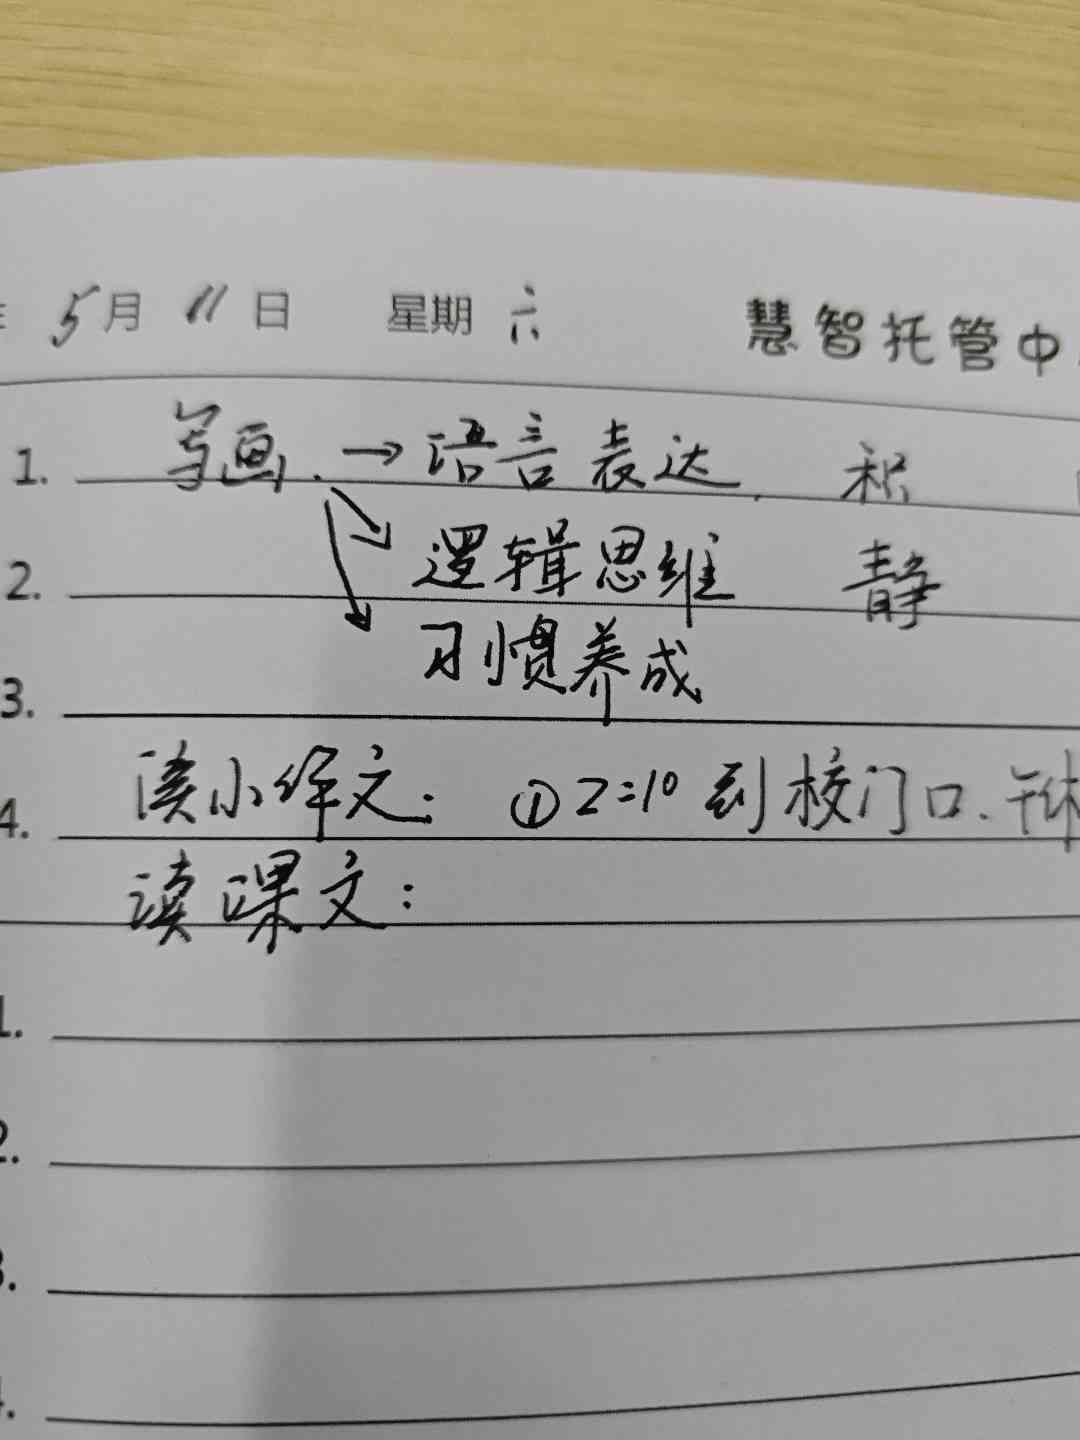 5月11日 星期六 慧智托管中
1. 写画. →语言表达. 积
2. 逻辑思维 静
习惯养成
3.
4. 读小作文: ①2:10到校门口.
读课文:
1.
2.
3.
4.